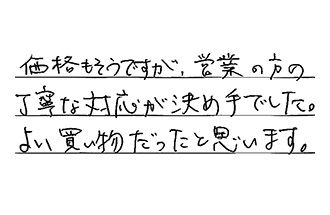 価格もそうですが、営業の方の
丁寧な対応が決め手でした。
よい買い物だったと思います。